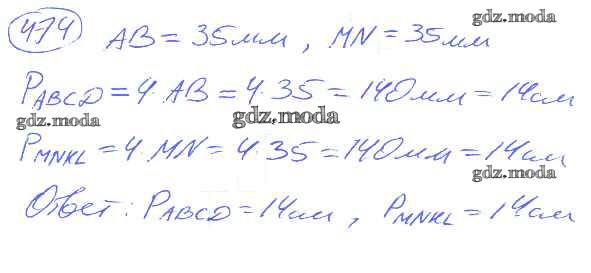 gdz.moda
474 AB = 35мм, MN = 35мм
P ABCD = 4·AB = 4·35 = 140мм = 14см
gdz.moda gdz.moda
P MNKL = 4·MN = 4·35 = 140мм = 14см
gdz.moda
Ответ: P ABCD = 14см, P MNKL = 14см